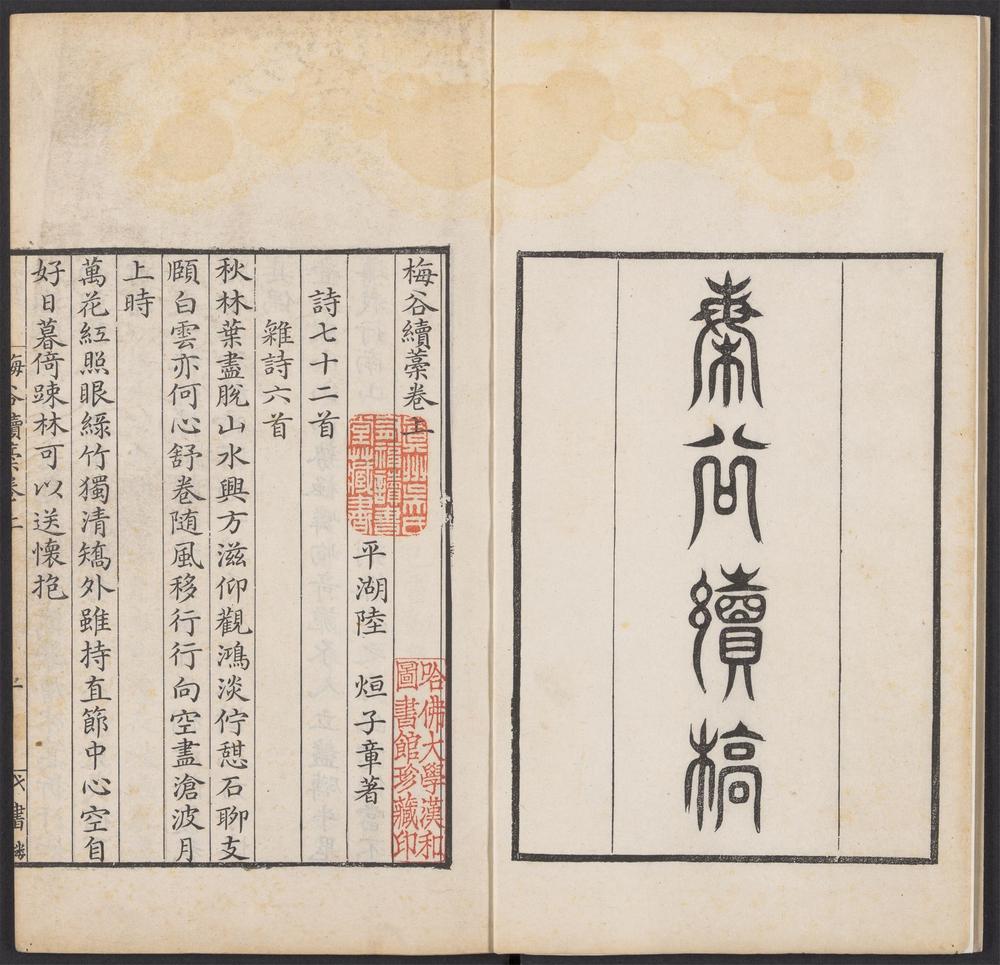 梅谷續稿
梅谷續藁卷上
平湖陸 烜子章著
詩七十二首
雜詩六首
秋林葉盡脫山水興方滋仰觀鴻淡佇憇石聊支
頤白雲亦何心舒卷随風移行行向空盡滄波月
上時
萬花紅照眼綠竹獨清矯外雖持直節中心空自
好日暮倚踈林可以送懷抱
梅谷續藁卷上
讀書
堂藏書
哈佛大學漢和
圖書館珍藏印